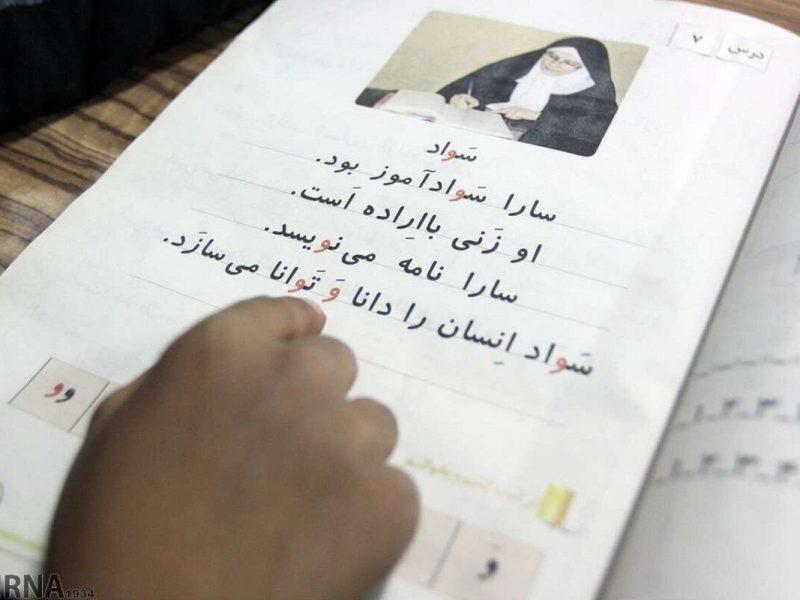 درس ۷
سَواد
سارا سَوادآموز بود.
او زَنی بااِراده اَست.
سارا نامه می‌نویسد.
سَواد اِنسان را دانا وَ تَوانا می‌سازَد.
و و
وَ
IRNA 1934